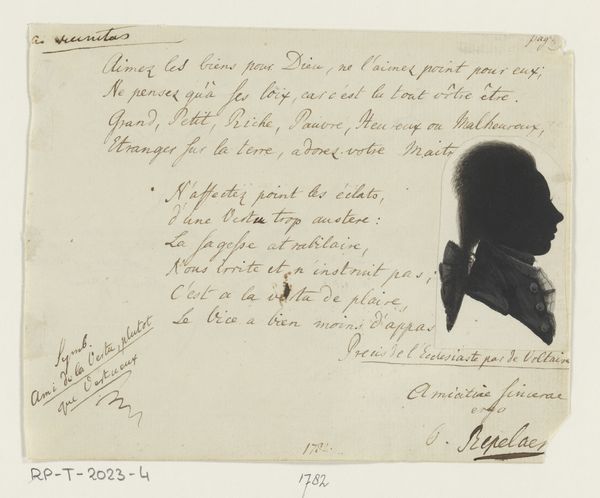 a. vunitas
pag
Aimez les biens pour Dieu, ne l'aimez point pour eux;
Ne pensez qu'à ses loix, car c'est lu tout vôtre être.
Grand, Petit, Riche, Pauvre, Heureux ou Malheureux,
Etranger sur la terre, adorez votre Maitr
N'affectez point les éclats,
d'une Vertu trop austere:
La sagesse atrabilaire,
Nous irrite et n'instruit pas;
C'est a la vertu de plaire,
Le Vice a bien moins d'appas
Precis de l'Eclesiaste par de Voltaire
Symb.
Ami de la Vertu, plutot
que Vertueux
Amicitiæ sincerae
ergo
Repelaer
1782.
RP-T-2023-4
1782